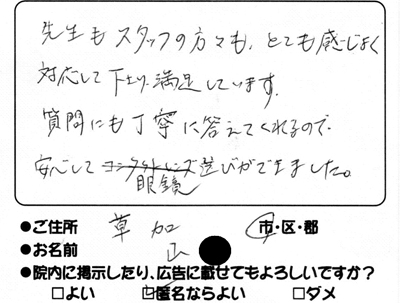 先生もスタッフの方々も、とても感じよく
対応して下さり、満足しています。
質問にも丁寧に答えてくれるので、
安心してコンタクトレンズ選びができました。
眼鏡
●ご住所 草加 市・区・郡
●お名前 山
●院内に掲示したり、広告に載せてもよろしいですか?
□よい □匿名ならよい □ダメ